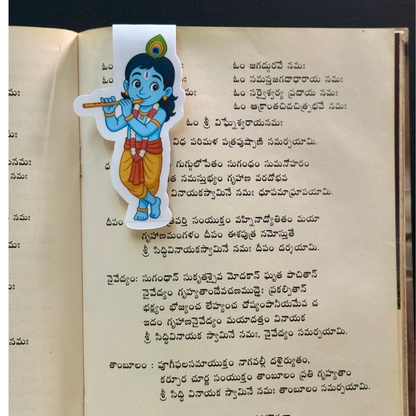 నమః
ఓం
ఓం జగద్గురవే నమః
ఓం సమస్తజగదాధారాయ నమః
ఓం సర్వైశ్వర్య ప్రదాయ నమః
ఓం ఆక్రాంతచిదచిత్ప్రభవే నమః
ఓం శ్రీ విఘ్నేశ్వరాయనమః
విధ పరిమళ పత్రపుష్పాణి సమర్పయామి.
గుగ్గులోపేతం సుగంధం సుమనోహరం
నమస్తుభ్యం గృహాణ వరదోభవ
వినాయకస్వామినే నమః ధూపమాఘ్రాపయామి.
దీపం వర్తి సంయుక్తం వహ్నినాద్యోతితం మయా
గృహాణమంగళం దీపం ఈశపుత్ర నమోస్తుతే
శ్రీ సిద్ధివినాయకస్వామినే నమః దీపం దర్శయామి.
నైవేద్యం: సుగంధాన్ సుకృతశ్చైవ మోదకాన్ ఘృత పాచితాన్
నైవేద్యం గృహ్యతాందేవచణముద్గైః ప్రకల్పితాన్
భక్ష్యం భోజ్యంచ లేహ్యంచ చోష్యంపానీయమేవ చ
ఇదం గృహాణనైవేద్యం మయాదత్తం వినాయక
శ్రీ సిద్ధివినాయక స్వామినే నమః, నైవేద్యం సమర్పయామి.
తాంబూలం : పూగీఫలసమాయుక్తం నాగవల్లీ దళైర్యుతం,
కర్పూర చూర్ణ సంయుక్తం తాంబూలం ప్రతి గృహ్యతాం
శ్రీ సిద్ధి వినాయక స్వామినే నమః తాంబూలం సమర్పయామి.